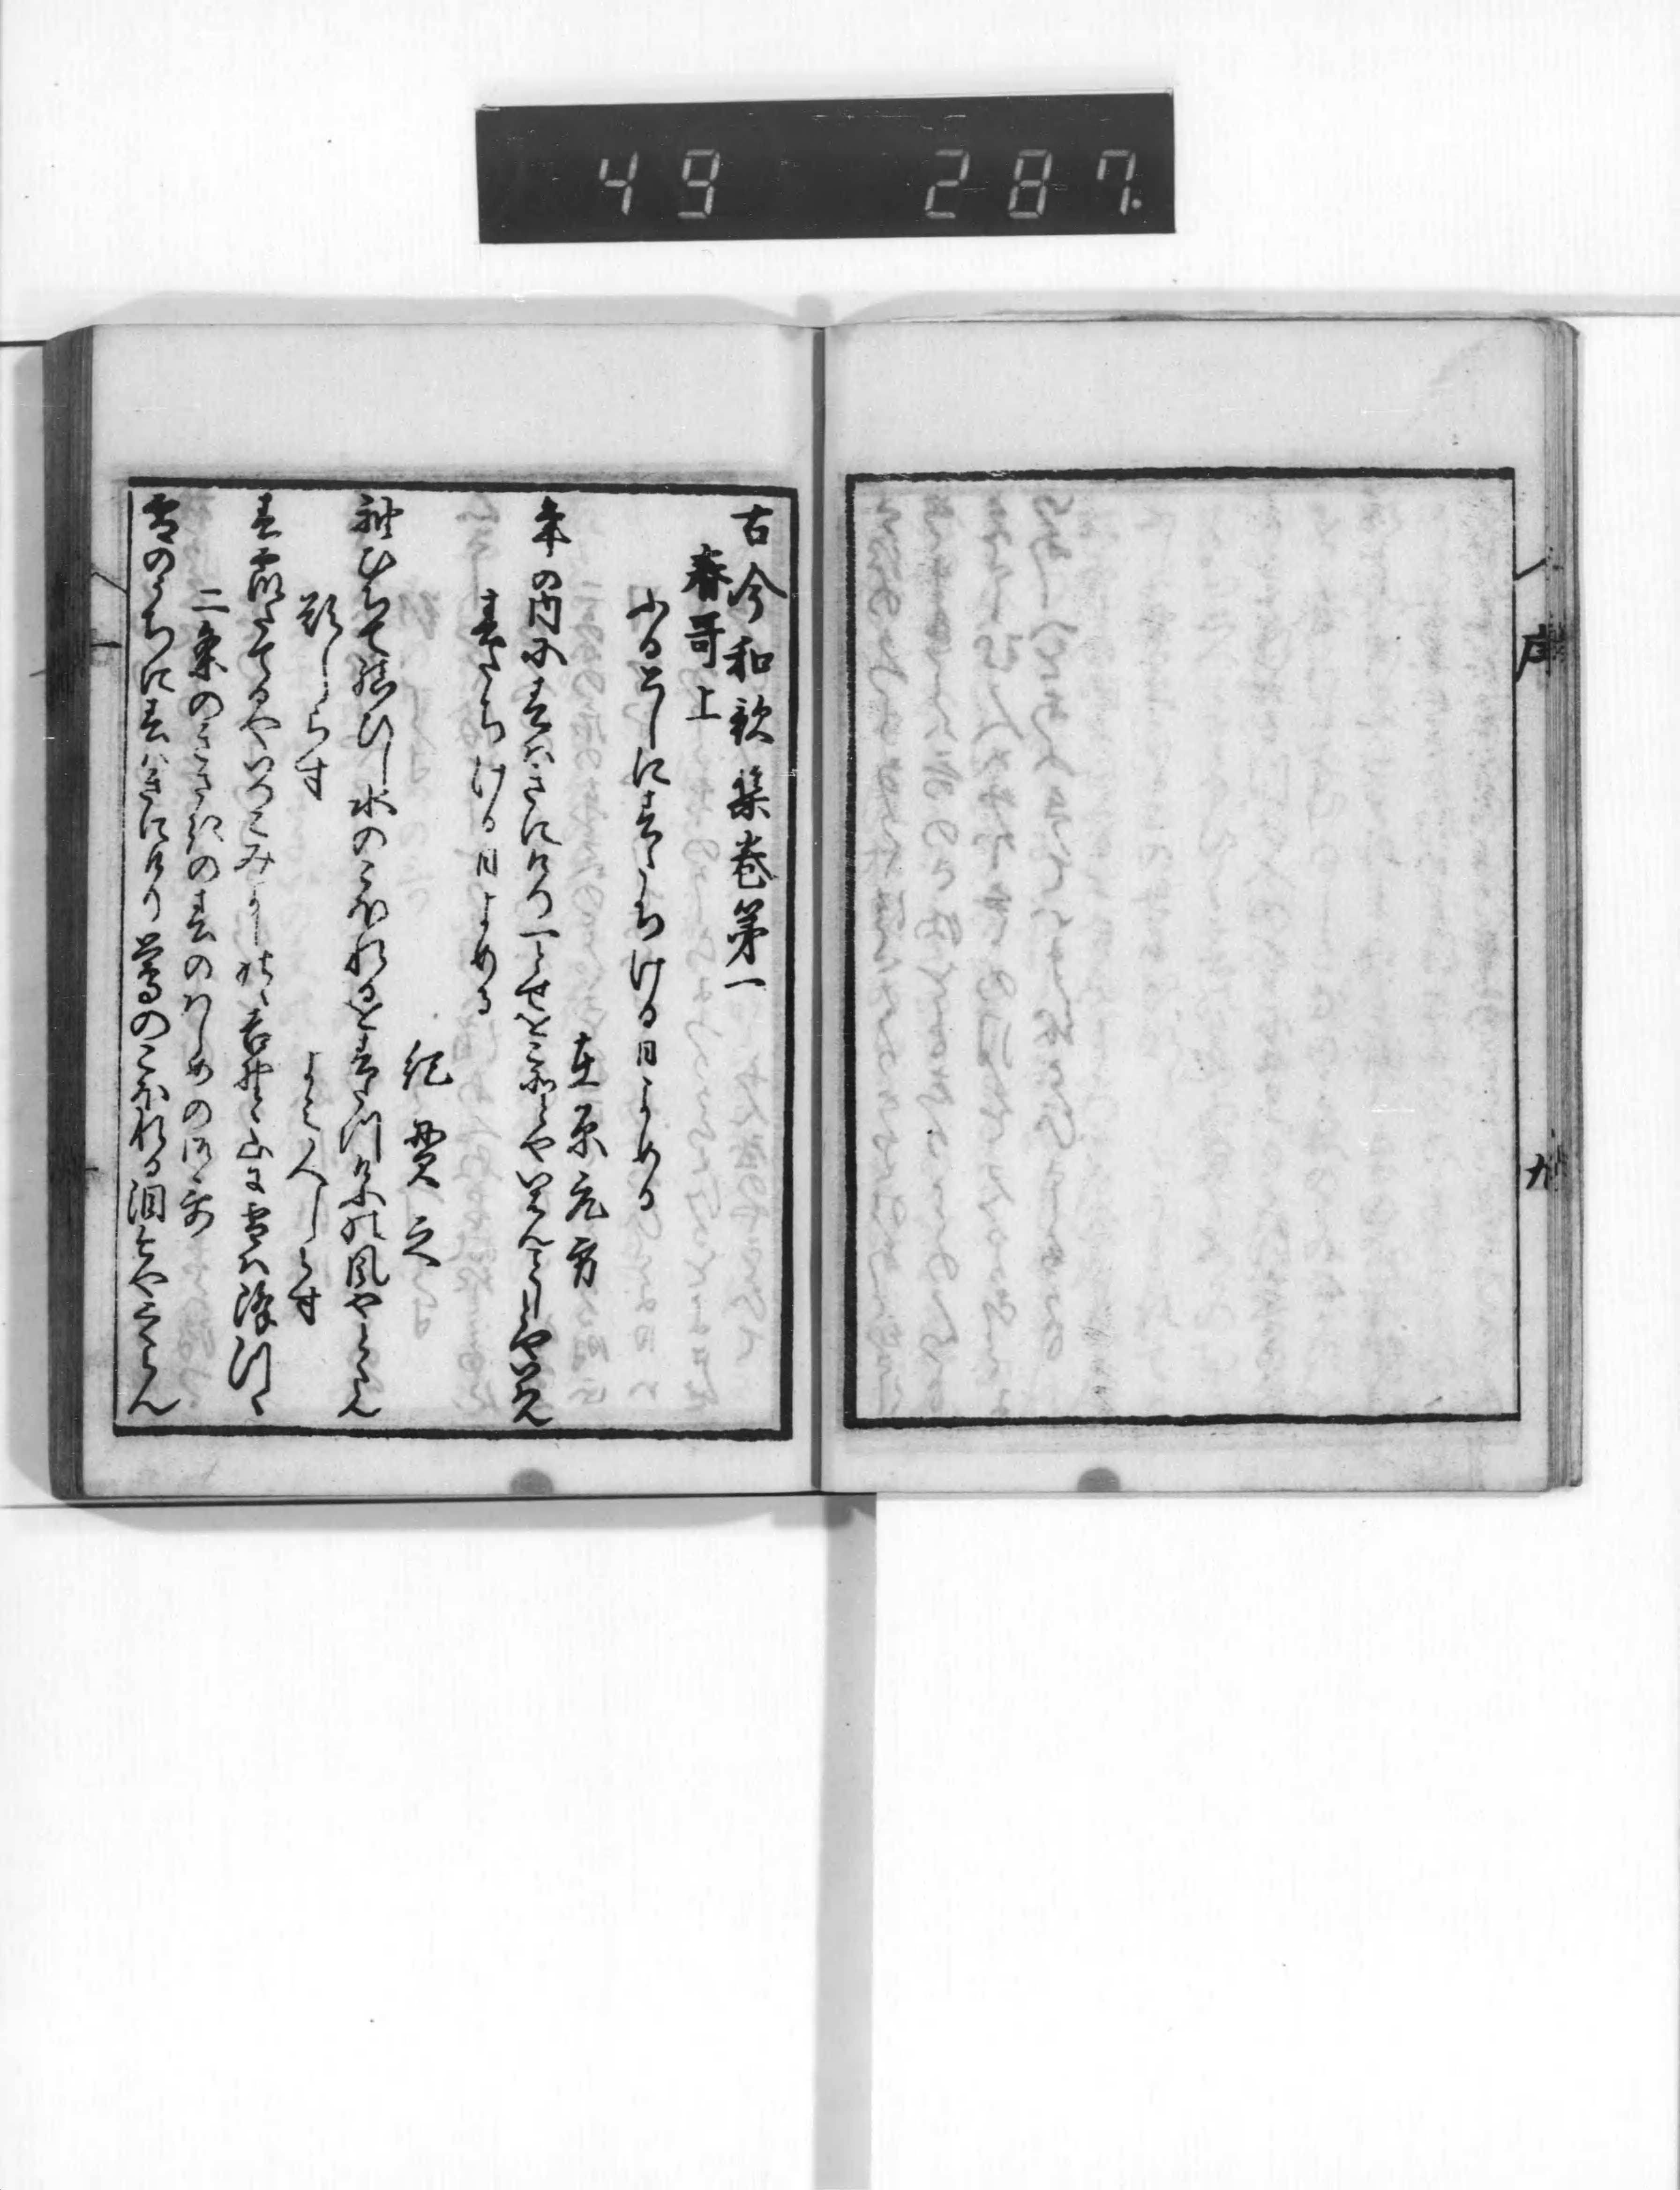 49 287.
序
九
古今和歌集巻第一
春哥上
ふるとしに春たちける日よめる
在原元方
年の内に春はきにけり一とせをこそとやいはんことしとやいはん
春たちける日よめる
紀貫之
袖ひちて結ひし水のこほれるを春立けふの風やとくらん
題しらす
よみ人しらす
春霞たてるやいつこみよしのゝ吉野ゝ山に雪は降つゝ
二条のきさきの春のはしめの御哥
雪のうちに春はきにけり鶯のこほれる泪今やとくらん